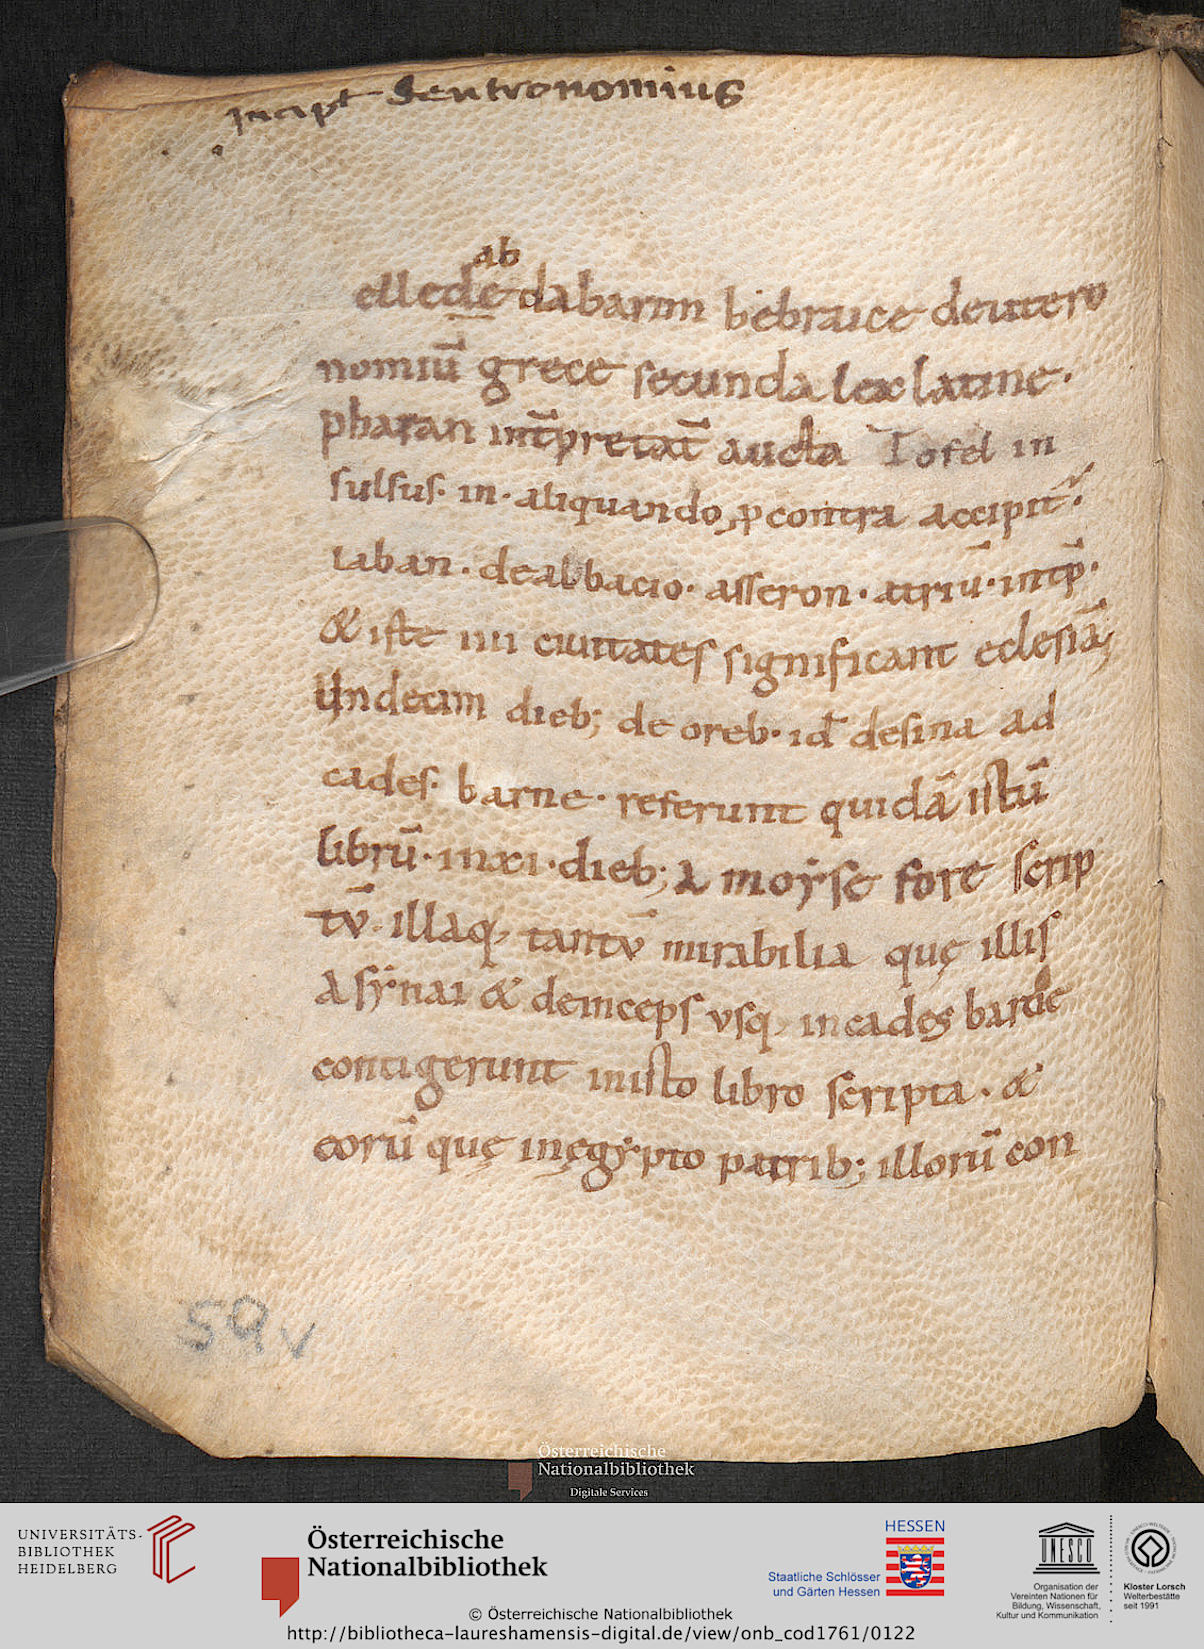 Incipt deutronomius
ab
ellede dabarim hebraice deutero
nomiū grece secunda lex latine.
pharan int̄pretat̄ aucta Tofel in
sulsus. in. aliquando, ꝓ contra accipit̄.
laban. dealbacio. asseron. atriū. int̄p̄.
& iste iiii ciuitates significant eclesiā;
Undecim dieb; de oreb. id̄ desina ad
cades. barne. referunt quidā istū
librū. in xi. dieb; A moẏse fore scrip
tv̄. illaq, tantv̄ mirabilia quę illis
A sẏnai & deinceps vsq, in cades
contigerunt in isto libro scripta. &
eorū quę in ęgẏpto patrib; illorū con
59v
Österreichische
Nationalbibliothek
Digitale Services
UNIVERSITÄTS-
BIBLIOTHEK
HEIDELBERG
Österreichische
Nationalbibliothek
HESSEN
Staatliche Schlösser
und Gärten Hessen
UNESCO
Organisation der
Vereinten Nationen für
Bildung, Wissenschaft,
Kultur und Kommunikation
Kloster Lorsch
Welterbestätte
seit 1991
© Österreichische Nationalbibliothek
http://bibliotheca-laureshamensis-digital.de/view/onb_cod1761/0122